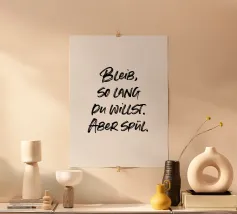 Bleib,
so lang
du willst.
Aber spül.